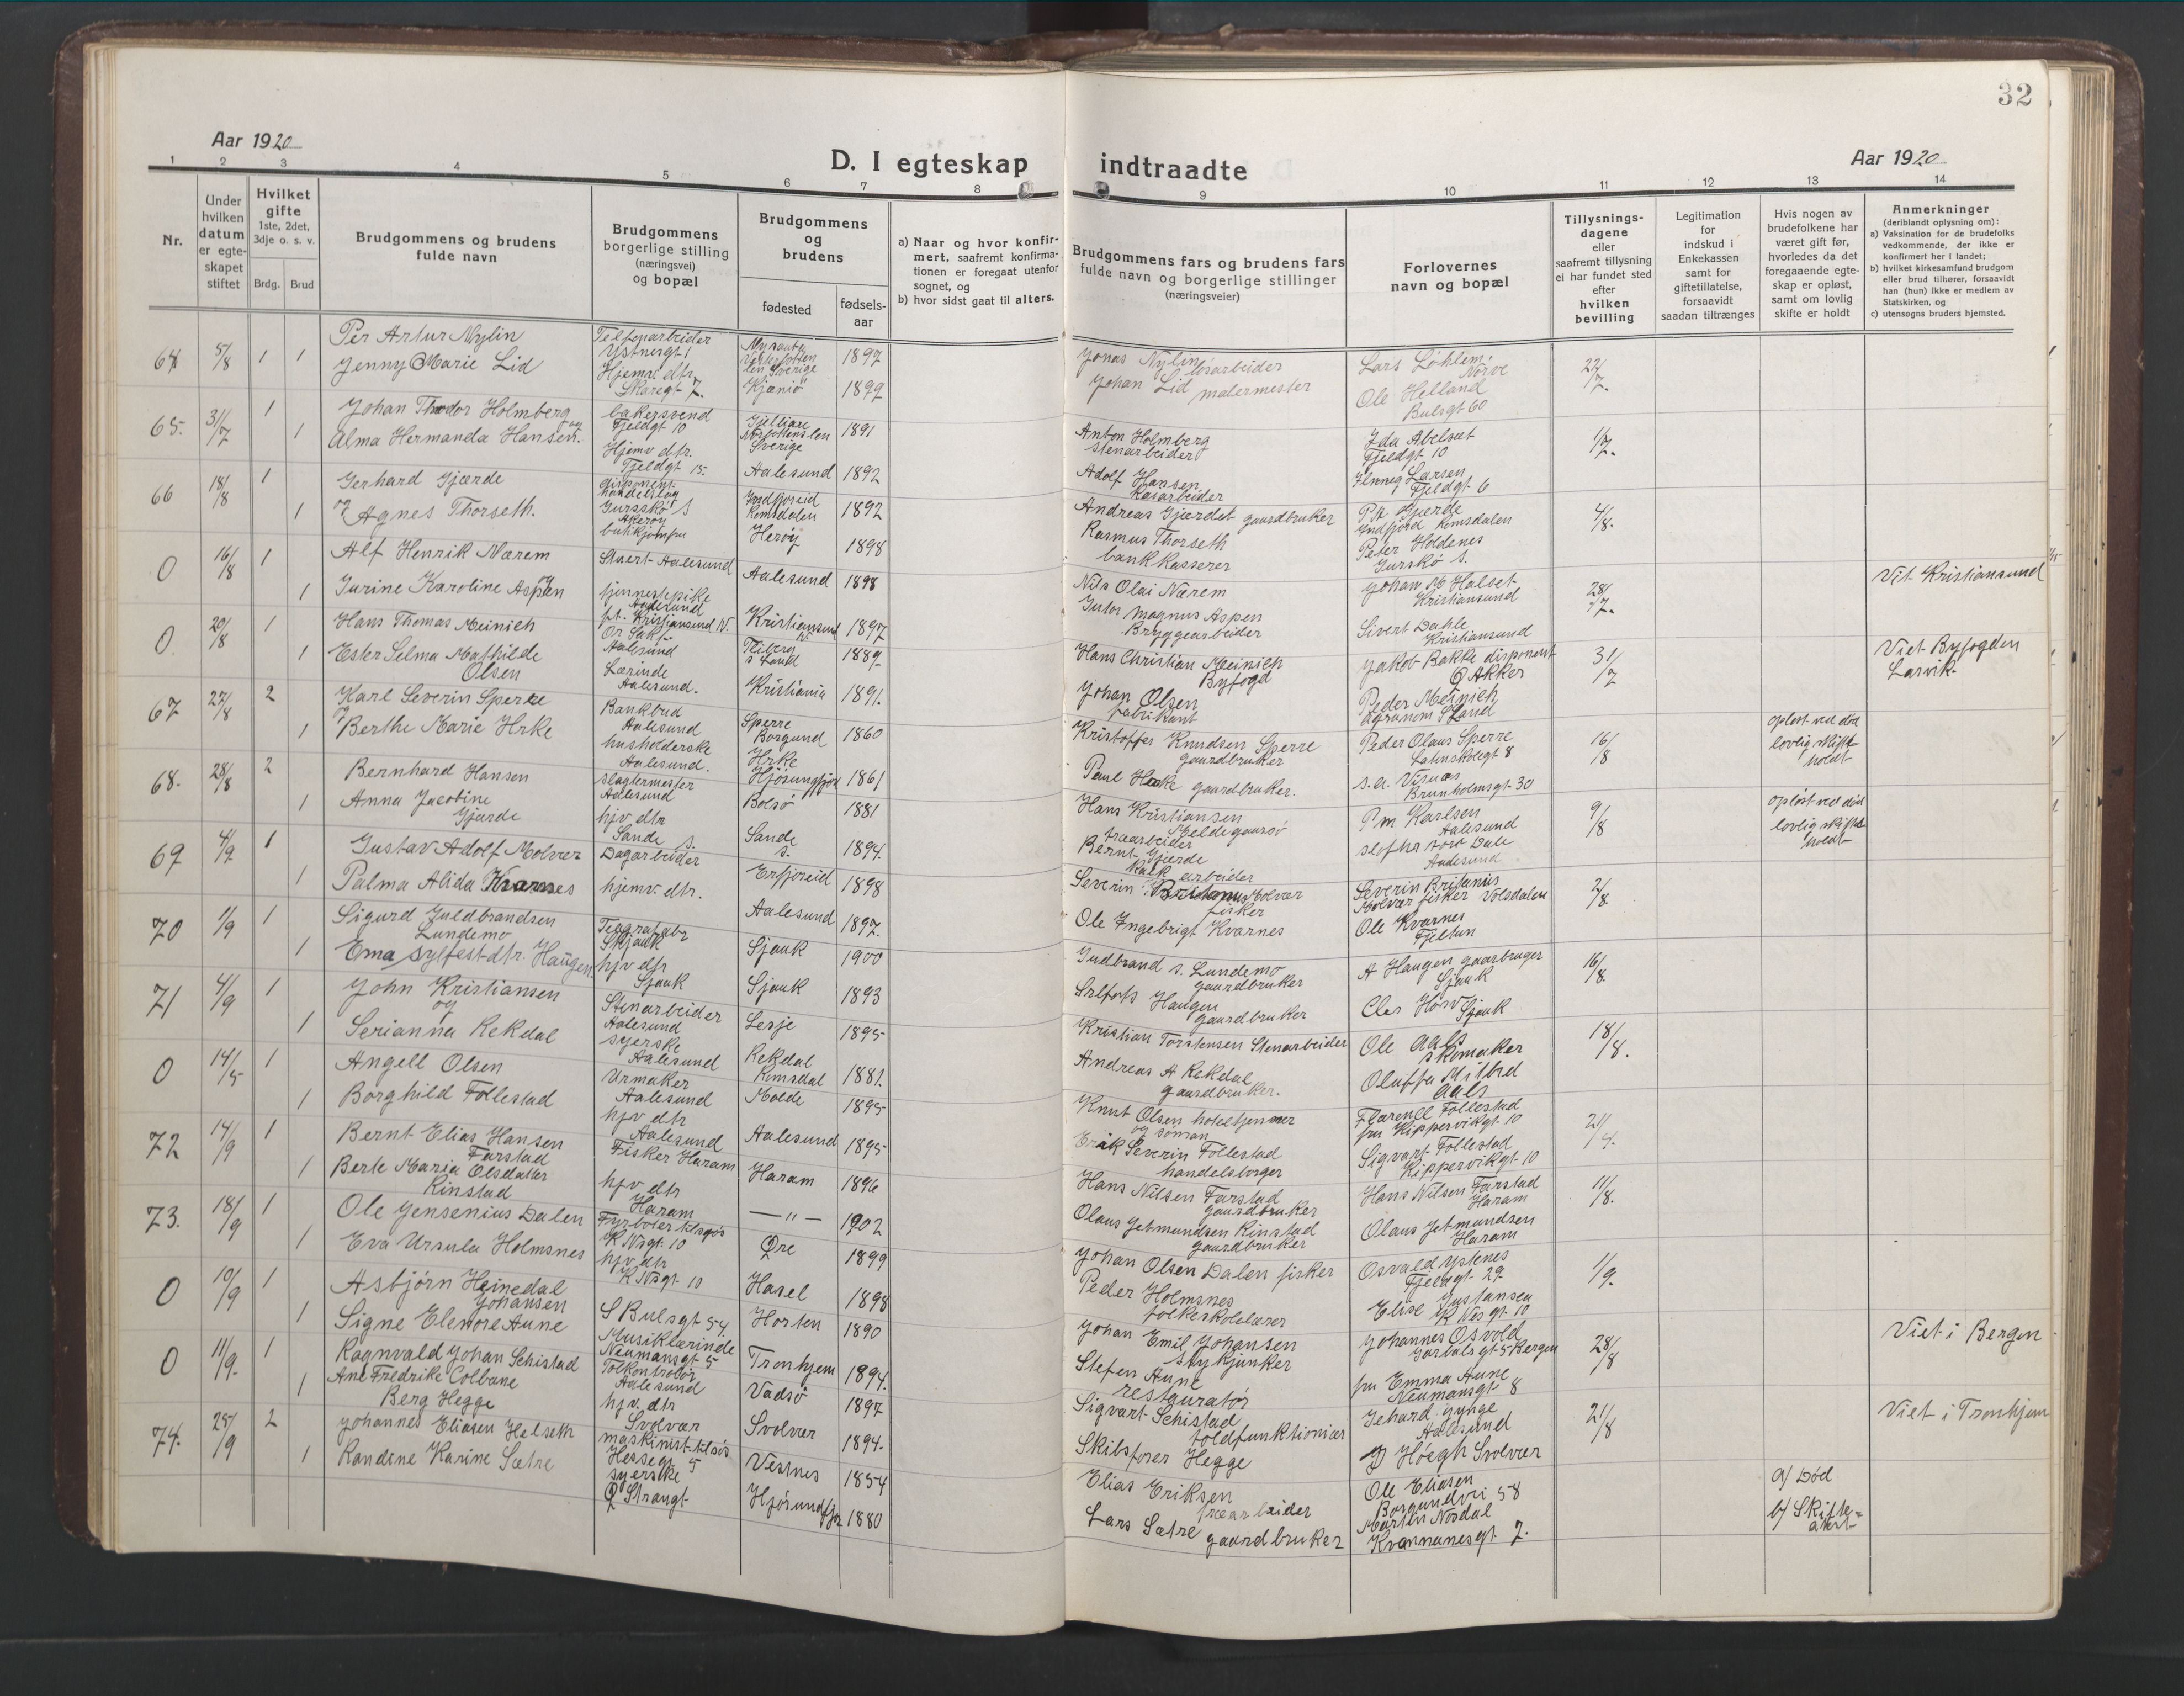 32
Aar 1920
D. I egteskap indtraadte
Aar 1920
1 2 3 4 5 6 7 8 9 10 11 12 13 14
Nr.
Under hvilken datum er egteskapet stiftet
Hvilket gifte
1ste, 2det, 3dje o. s. v.
Brdg. Brud
Brudgommens og brudens fulde navn
Brudgommens borgerlige stilling (næringsvei) og bopæl
Brudgommens og brudens
fødested
fødsels-aar
a) Naar og hvor konfirmert, saafremt konfirmationen er foregaat utenfor sognet, og
b) hvor sidst gaat til alters.
Brudgommens fars og brudens fars fulde navn og borgerlige stillinger (næringsveier)
Forlovernes navn og bopæl
Tillysningsdagene eller saafremt tillysning ei har fundet sted efter hvilken bevilling
Legitimation for indskud i Enkekassen samt for giftetillatelse, forsaavidt saadan tiltrænges
Hvis nogen av brudefolkene har været gift før, hvorledes da det foregaaende egteskap er opløst, samt om lovlig skifte er holdt
Anmerkninger
(deriblandt oplysning om):
a) Vaksination for de brudefolks vedkommende, der ikke er konfirmert her i landet;
b) hvilket kirkesamfund brudgom eller brud tilhører, forsaavidt han (hun) ikke er medlem av Statskirken, og
c) utensogns bruders hjemsted.
64 5/8 1 1
Per Artur Nylin
Jenny Marie Lid
Hjemv. dtr.
Skaregt 7.
Sverige 1897
1899
Jonas Nylin
Johan Lid malermester
Lars Løhlem
Nørve
Ole Helland
Bulsgt 60
22/7.
65. 31/7 1 1
Johan Thodor Holmberg og
Alma Hermanda Hansen.
bakersvend
Fjeldgt 10
Hjemv dtr.
Fjeldgt 15.
Sverige 1891
Aalesund 1892
Anton Holmberg
Stenarbeider
Adolf Hansen
Ida Abelset
Fjeldgt 10
Larsen
Fjeldgt 6
1/7.
66 18/8 1 1
Gerhard Gjærde
og Agnes Thorseth.
disponent
handelslag
Gurskø S
Romsdalen 1892
Herøy 1898
Andreas Gjærdet gaardbruker
Rasmus Thorseth
bankkasserer
Gjerde
Romsdalen
Peter Holdenes
Gurskø S.
4/8.
0 16/8 1 1
Alf Henrik Nærem
og
Jurine Karoline Aspen
Stuert Aalesund
tjenestepike
Aalesund
pt. Kristiansund N.
Aalesund 1898
Kristiansund N 1897
Nils Olai Nærem
Magnus Aspen
Bryggearbeider
Johan Halset
Kristiansund
Sivert Dahle
Kristiansund
28/7.
Vit Kristiansund
0. 20/8 1 1
Hans Thomas Meinich
Ester Selma Mathilde
Olsen
Or Sakf.
Aalesund
Lærinde
Aalesund.
S Land 1889
Kristiania 1891.
Hans Christian Meinich
Byfogd
Johan Olsen
fabrikant
Jakob Bakke disponent
Ø Akker
Peder Meinich
agronom S Land
31/7
Viet Byfogden
Larvik.
67 27/8 2 1
Karl Severin Sperre
og
Berthe Marie Hrke
Bankbud
Aalesund
husholderske
Aalesund.
Sperre
Borgund 1860
1861
Kristoffer Knudsen Sperre
gaardbruker
Paul gaardbruker.
Peder Olaus Sperre
Latinskolegt 8
Brunholmsgt 30
16/8
opløst ved død
lovlig skifte
holdt
68. 28/8 2 1
Bernhard Hansen
Anna Jacobine
Gjærde
slagtermester
Aalesund
hjv dtr
Sande S.
Bolsø 1881
Sande S. 1894.
Hans Kristiansen
traarbeider
Bernt Gjærde
arbeider
Karlsen
Aalesund
Dale
Aalesund
9/8
opløst ved død
lovlig skifte
holdt
69 4/9 1 1
Gustav Adolf Molvær
Palma Alida Kvarnes
Dagarbeider
hjemv. dtr.
Erfjoreid 1898
Aalesund 1897.
Severin Molvær
fisker
Ole Ingebrigt Kvarnes
Severin
Molvær fisker Volsdalen
Ole Kvarnes
Fjeltun
2/8
70 1/9 1 1
Sigurd Guldbrandsen
Lundemo
Erna Sylfestdtr. Haugen
Skjaak
hjv dtr
Sjaak
Sjaak 1900
Sjaak 1893
Gudbrand S. Lundemo
gaardbruker
Haugen
gaardbruker
A Haugen gaarbruger
Sjaak
Sjaak
16/8.
71 4/9 1 1
John Kristiansen
og
Serianna Rekdal
Stenarbeider
Aalesund
syerske
Aalesund
Lesje 1895
Rekdal
Romsdal 1881.
Kristian Torstensen Stenarbeider
Andreas A Rekdal
gaardbruker.
Ole Aals
skomaker
Oluffa
Aals
18/8.
0 14/5 1 1
Angell Olsen
Borghild Follestad
Urmaker
Aalesund
hjv dtr
Aalesund
Molde 1895
Aalesund 1895
Knut Olsen hoteltjenner
og
Erik Severin Follestad
handelsborger
Follestad
Kippervikgt 10
Sigvart Follestad
Kippervikgt 10
21/4.
72 14/9 1 1
Bernt Elias Hansen
Farstad
Berte Maria Olsdatter
Rinstad
Fisker Haram
hjv dtr
Haram
Haram 1896
— " — 1902
Hans Nilsen Farstad
gaardbruker
Olaus Jetmundsen Rinstad
gaardbruker
Hans Nilsen Farstad
Haram
Olaus Jetmundsen
Haram
11/8.
73. 18/9 1 1
Ole Jensenius Dalen
Eva Ursula Holmsnes
Fyrbøter tilsjøs
K Nsgt. 10
hjv dtr
K Nsgt 10
Øre 1899
Hasel 1898
Johan Olsen Dalen fisker
Peder Holmsnes
folkeskolelærer
Osvald Ystenes
Fjeldgt 29.
Elise
K Nes gt. 10
1/9.
0 10/9 1 1
Asbjørn Heinedal
Johansen
Signe Elenore Aune
S Bulsgt 54.
Musiklærinde
Neumansgt 5
Horten 1890
Tronhjem 1894.
Johan Emil Johansen
stykjunker
Stefen Aune
restauratør
Johannes Osvold
Bergen
fru Emma Aune
Neumansgt 8
28/8
Viet i Bergen
0 11/9. 1 1
Ragnvald Johan Schistad
Ane Fredrike Colbane
Berg Hegge
Tolkontrolør
Aalesund
hjv. dtr
Svolvær
Vadsø 1897
Svolvær 1894.
Sigvart Schistad
toldfunktionær
Skibsfører Hegge
Gehard
Aalesund
Høegh Svolvær
21/8
Viet i Tronhjem
74. 25/9 2 1
Johannes Eliasen Helseth
Randine Karine Sætre
maskinist tilsjøs
Hessegt 5
syerske
Ø Strangt
Vestnes 1854
Hjørundfjor 1880
Elias Eriksen
træarbeider
Lars Sætre gaardbruker
Ole Eliasen
Borgundvei 58
Martin Nosdal
Kvennanesgt 7.
a) Død
b) Skifte=
attest